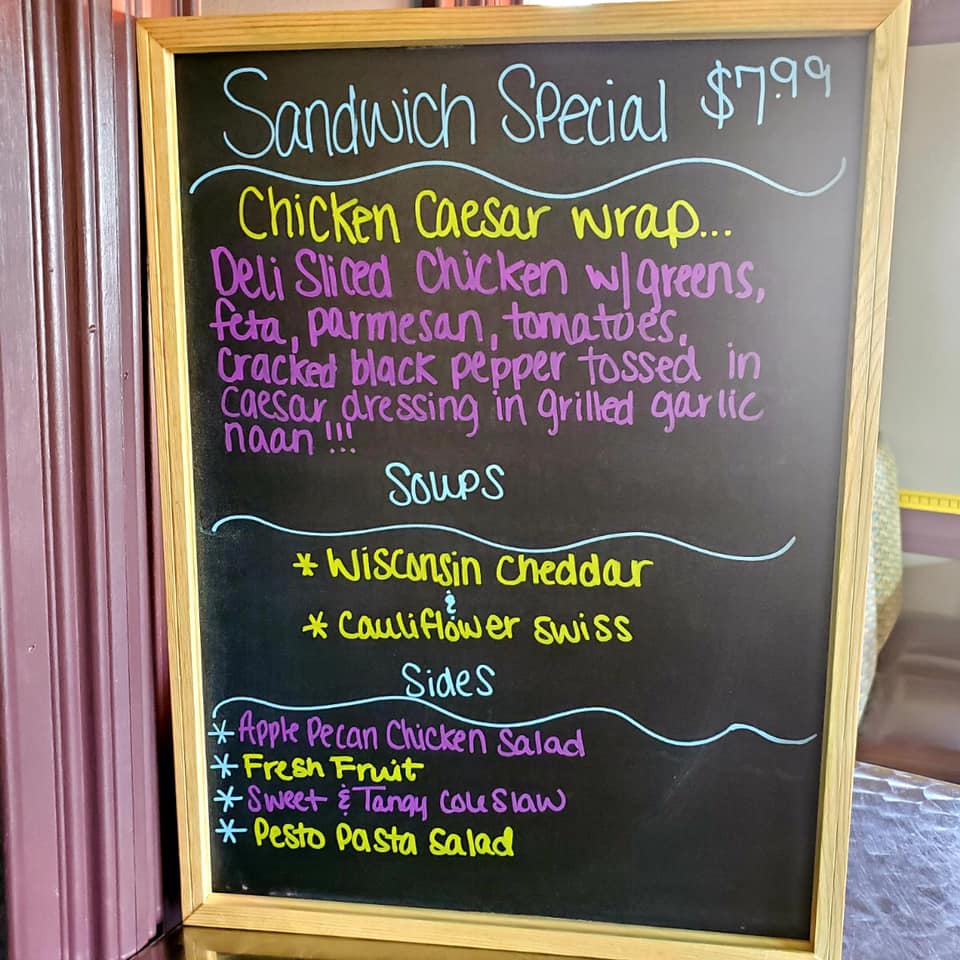 Sandwich Special $7.99
Chicken Caesar wrap...
Deli Sliced Chicken w/greens,
feta, parmesan, tomatoes,
cracked black pepper tossed in
caesar dressing in grilled garlic
naan!!!
Soups
* Wisconsin Cheddar
&
* Cauliflower Swiss
Sides
* Apple Pecan Chicken Salad
* Fresh Fruit
* Sweet & Tangy Cole Slaw
* Pesto Pasta Salad